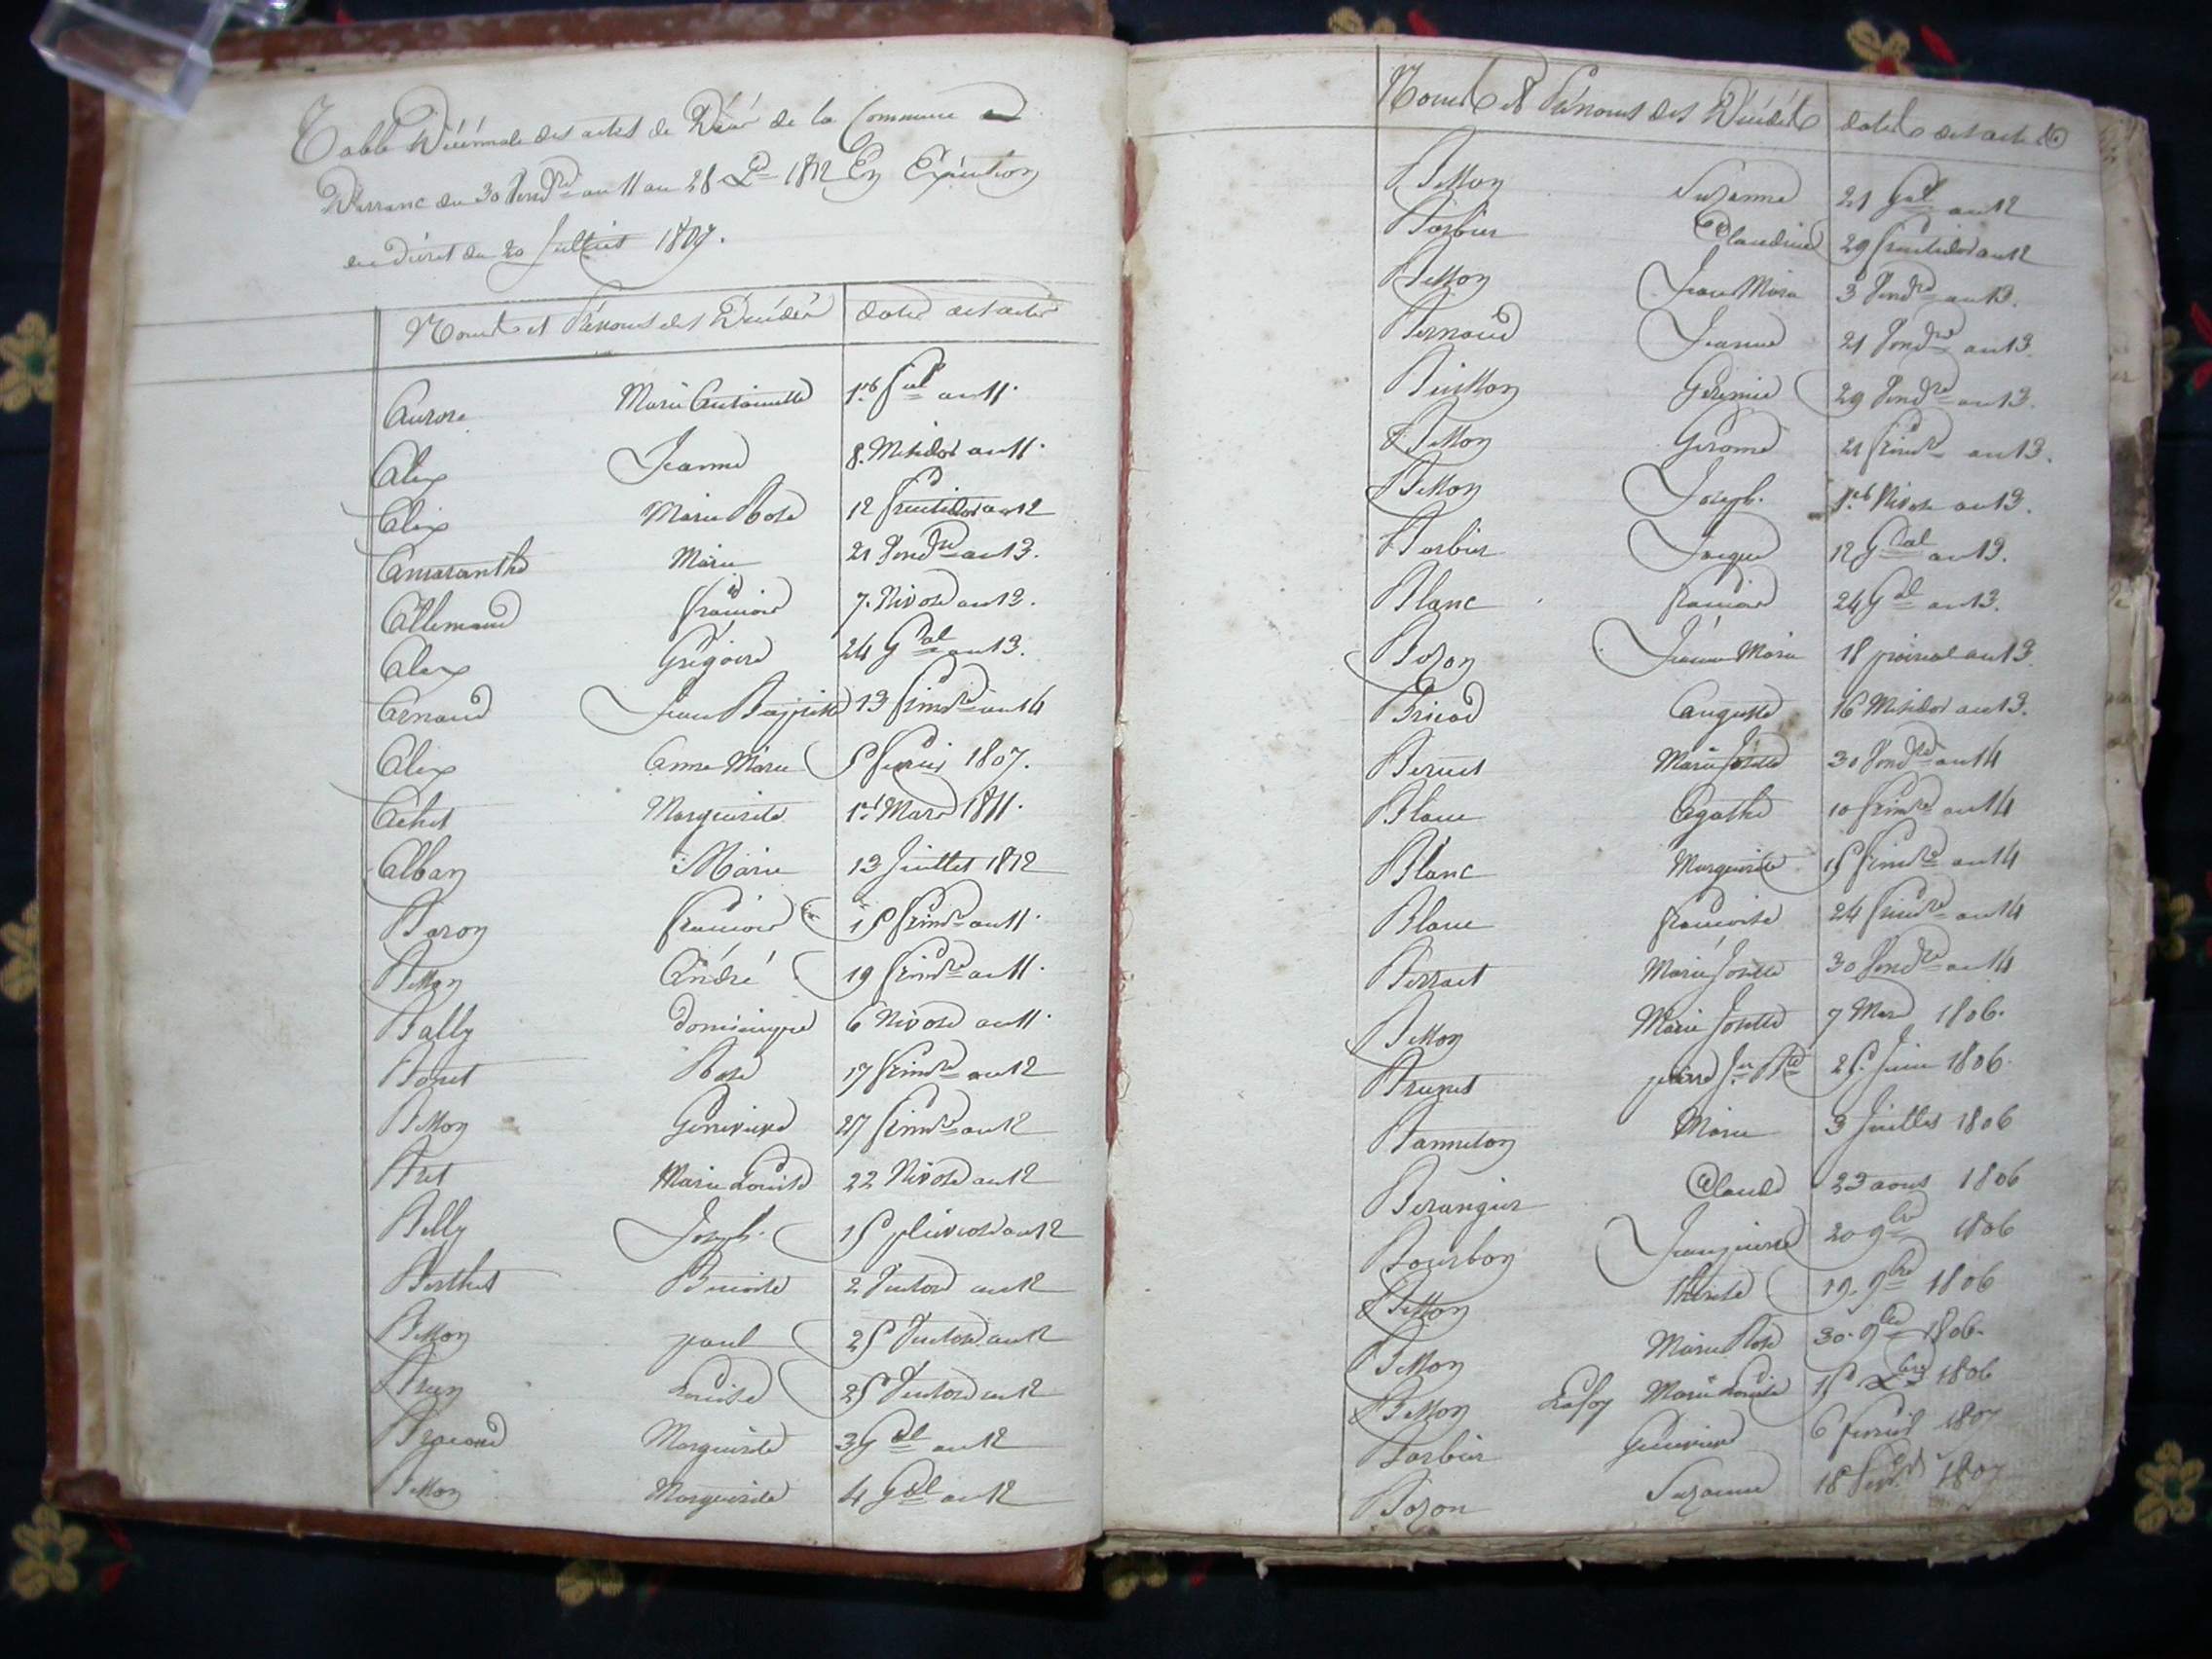 Table Décénnale des actes de Décès de la Commune
D'arranc du 30 Vend.re an 11 au 28 X.bre 1812 En Exécution
du décret du 20 Juillet 1807.
Noms et Prénoms des Décédés dates des actes
Aurore Marie Antoinette 1.er an 11.
Alix Jeanne 8. Messidor an 11.
Alix Marie Rose 12 fructidor an 12
Amaranthe Marie 21 Vend.re an 13.
Allemand françois 7. Nivose an 13.
Alex Grégoire 24 G.al an 13.
Arnaud Jean Baptiste 13 frim.re an 14
Alix Anne Marie 5 fevrier 1807.
Achet Marguerite 1.er Mars 1811.
Alban Marie 13 Juillet 1812
Baron françois 15 frim.re an 11.
Betton André 19 frim.re an 11.
Bally dominique 6 Nivose an 11.
Bonet Rose 17 frim.re an 12
Betton Geneviève 27 frim.re an 12
Bret Marie Louise 22 Nivose an 12
Billy Joseph 15 pluviose an 12
Berthet Benoite 2 Ventose an 12
Betton paul 25 Ventose an 12
Brun Louise 25 Ventose an 12
Marguerite 3 G.al an 12
Betton Marguerite 4 G.al an 12
Noms et Prénoms des Décédés dates des actes
Betton Suzanne 21 G.al an 12
Barbier Claudine 29 fructidor an 12
Betton Jean Marie 3 Vend.re an 13.
Bernard Jeanne 21 Vend.re an 13.
Buisson Géremie 29 Vend.re an 13.
Betton Gérome 21 frim.re an 13.
Betton Joseph. 1.er Nivose an 13.
Barbier Jacques 12 G.al an 13.
Blanc françois 24 G.al an 13.
Bozon Jeanne Marie 18 prairial an 13
Bricod Auguste 16 Messidor an 13.
Beruet Marie Josette 30 Vend.re an 14
Blanc Agathe 10 frim.re an 14
Blanc Marguerite 15 frim.re an 14
Blanc françoise 24 frim.re an 14
Berruet Marie Josette 30 Vend.re an 14
Betton Marie Josette 7 Mars 1806.
Brunet pierre J.n B.te 25. Juin 1806.
Banneton Marie 3 Juillet 1806
Berangier Claude 23 aout 1806
Bourbon Jean pierre 20 9.bre 1806
Betton thérèse 19. 9.bre 1806
Betton Marie Rose 30. 9.bre 1806.
Betton Lafoy Marie Louise 15 X.bre 1806
Barbier Geneviève 6 fevrier 1807
Bozon Suzanne 18 1807